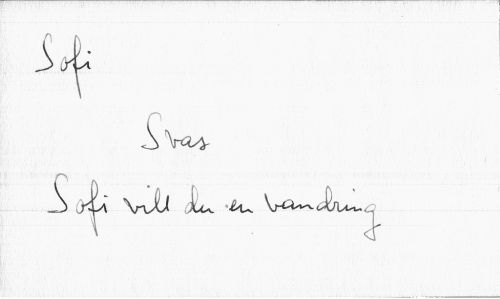 Sofi
Svas
Sofi vill du en vandring